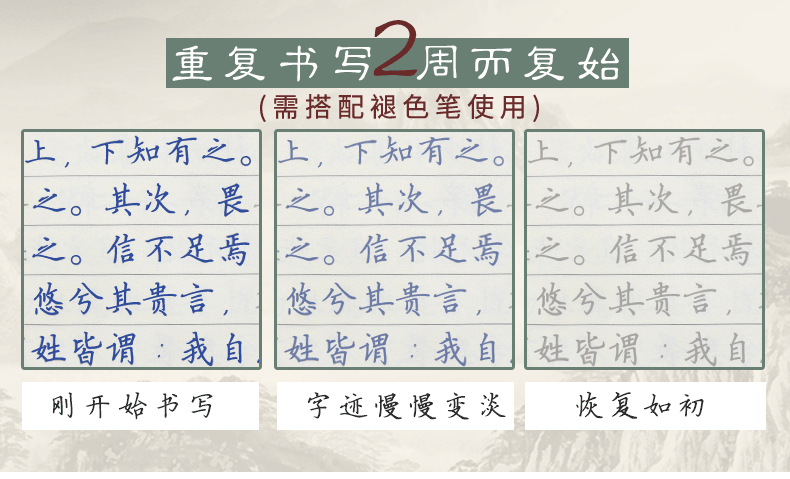 重复书写2周而复始
(需搭配褪色笔使用)
上，下知有之。
之。其次，畏
之。信不足焉
悠兮其贵言，
姓皆谓：我自
上，下知有之。
之。其次，畏
之。信不足焉
悠兮其贵言，
姓皆谓：我自
上，下知有之。
之。其次，畏
之。信不足焉
悠兮其贵言，
姓皆谓：我自
刚开始书写
字迹慢慢变淡
恢复如初